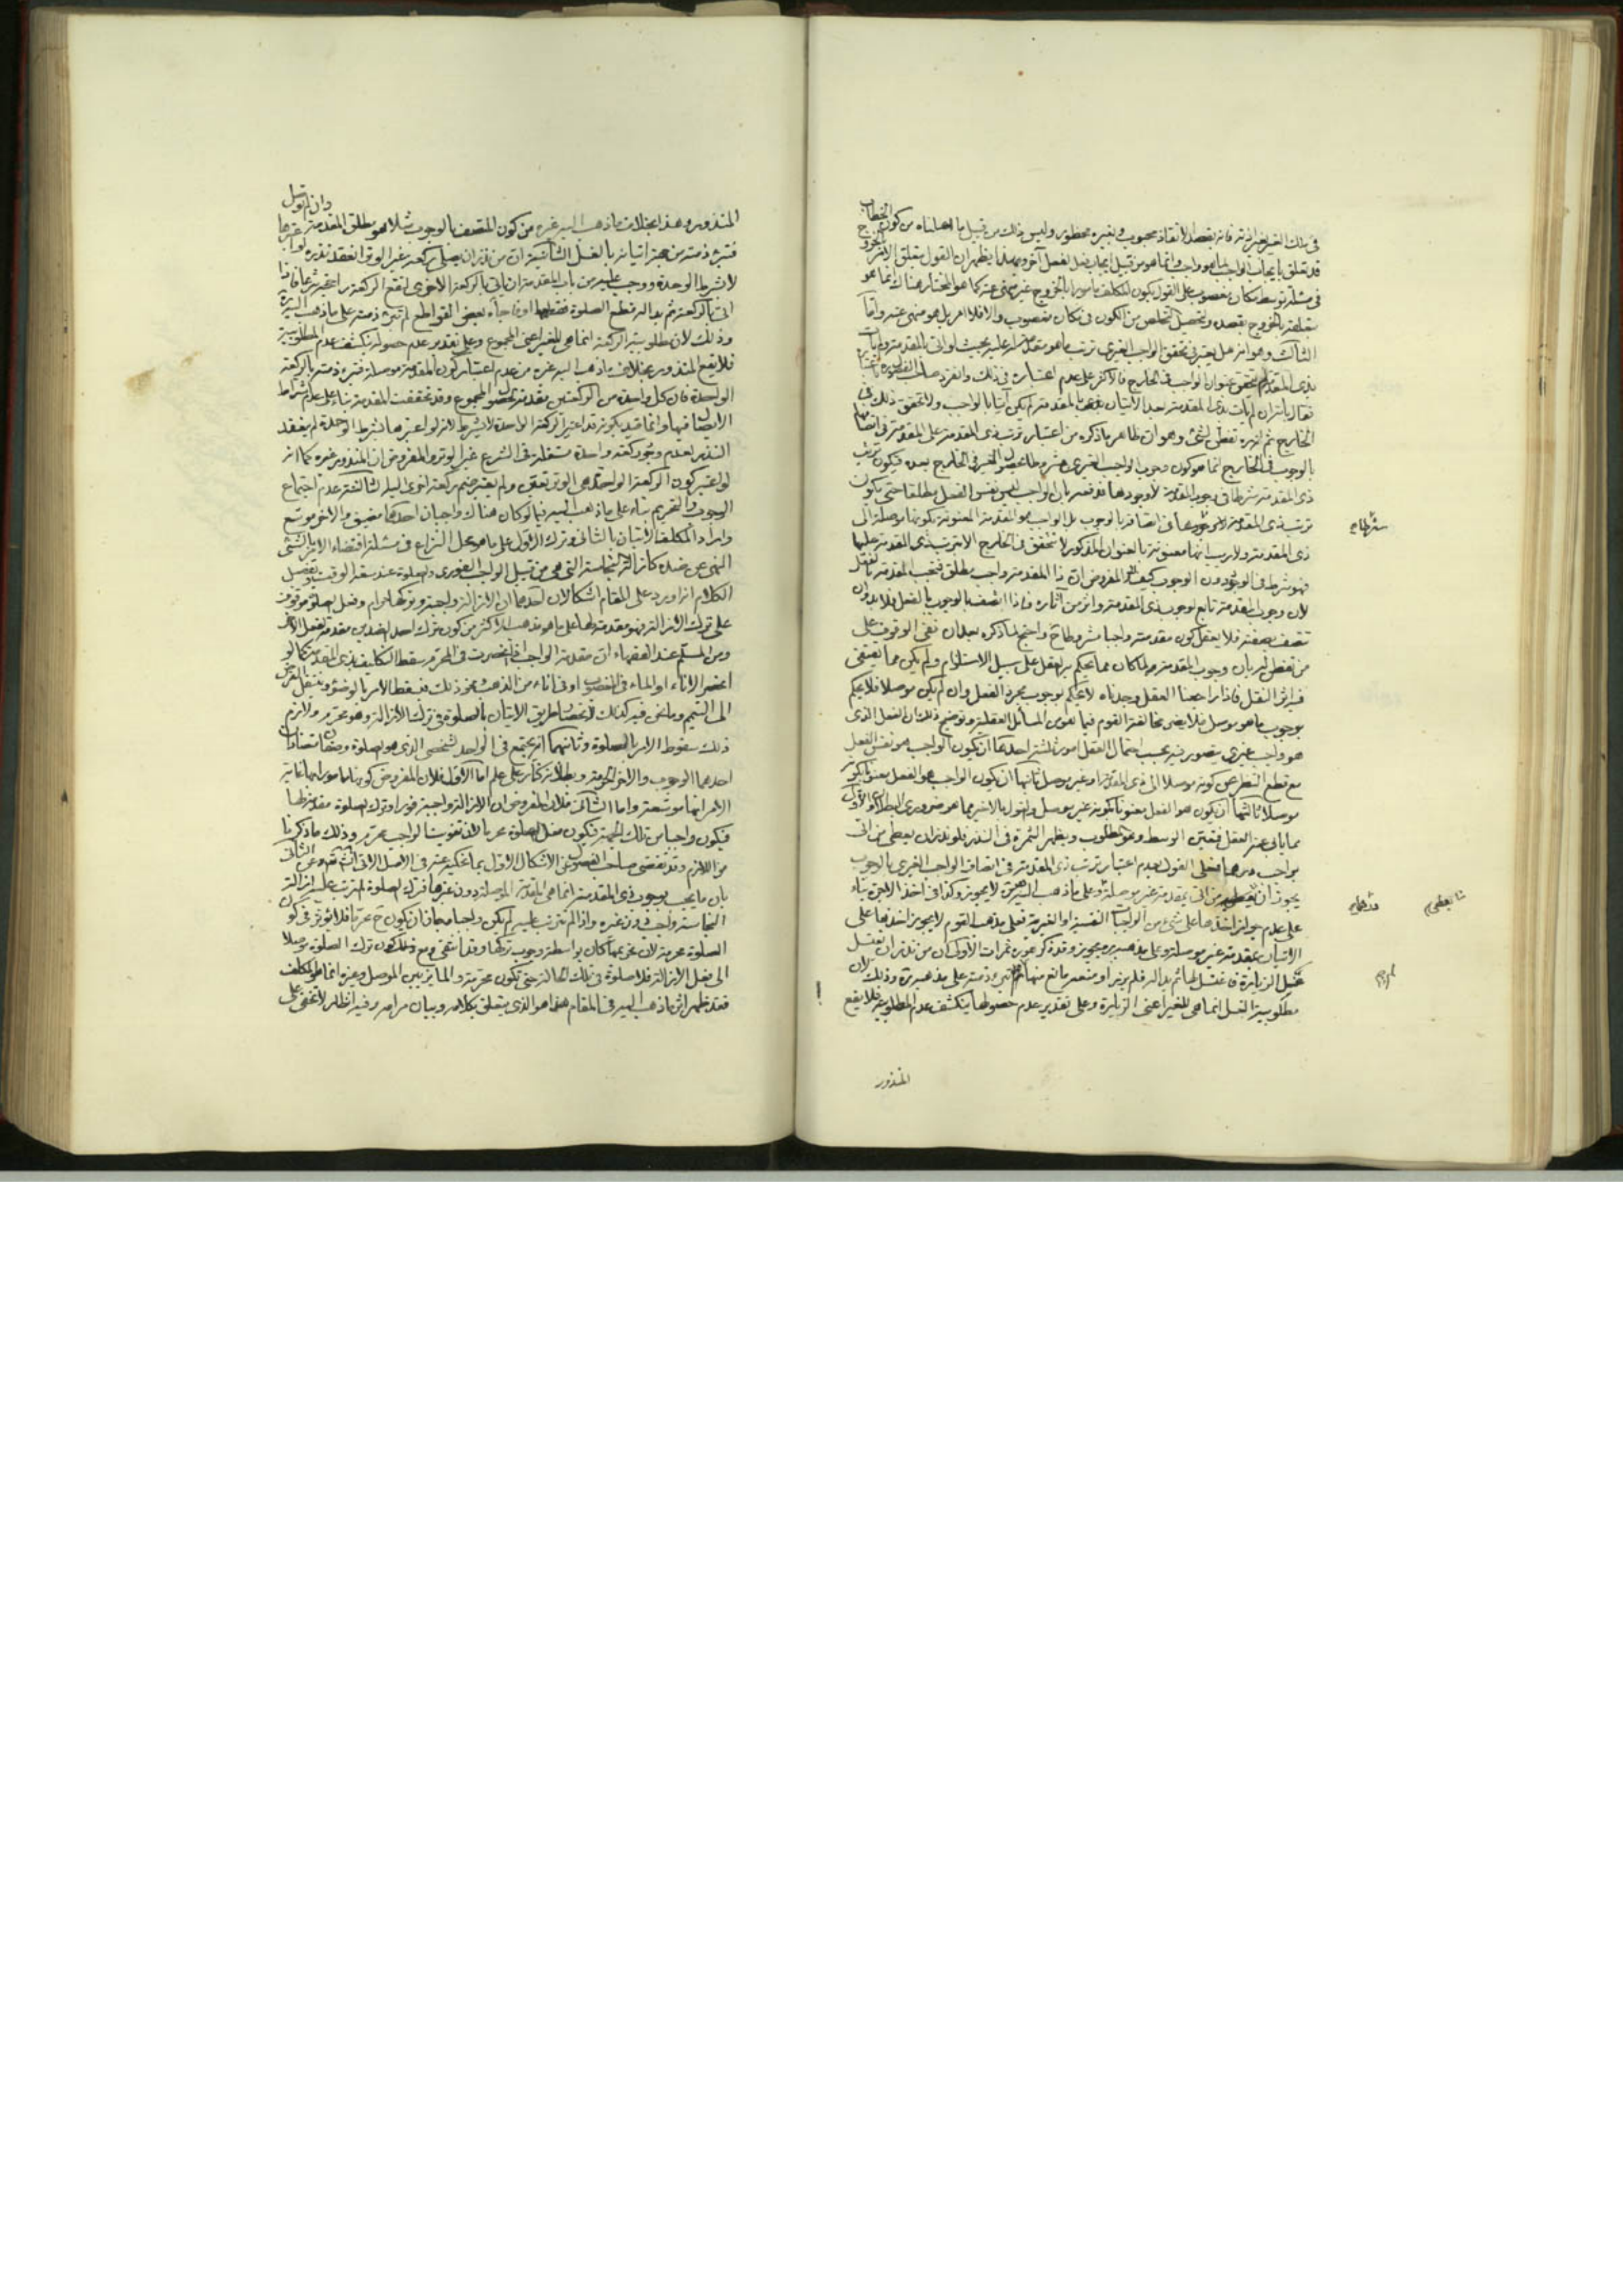 في تلك الغير لغيرية فانه بقصد الانقاذ محبوب وبغيره محظور وليس ذلك من قبيل ما اصلناه من كون الخطاب
قد تعلق بايجاب الواجب لما هو واجب وانما هو من قبيل ايجاب فعل لفعل آخر ومما يظهر ان القول بتعلق الامر
في مسئلة توسط مكان مغصوب على القول بكون المكلف مامورا بالخروج غير منهي عنه كما هو المختار هناك انما هو
بتعلقه بالخروج بقصد وتحصيل التخلص من الكون في مكان مغصوب والا فلا امر بل هو منهي عنه واما
الثالث وهو انه هل يعتبر في تحقق الواجب الغيري ترتب ما هو مقدمة له عليه بحيث لو اتى بالمقدمة ولم يات
بذي المقدمة لم يتحقق عنوان الواجب في الخارج فالاكثر على عدم اعتباره في ذلك وانفرد صاحب الفصول باعتباره
فقال بانه ان لم يات بذي المقدمة بعد الاتيان بالمقدمة لم يكن آتيا بالواجب ولا تحقق ذلك في
الخارج ثم انه تفطن لشيء وهو ان ظاهر ما ذكره من اعتبار ترتب ذي المقدمة على المقدمة في اتصافها
بالوجوب في الخارج انما هو كون وجوب الواجب الغيري مشروطا بحصول الغير في الخارج بعده فيكون ترتب
ذي المقدمة شرطا في وجوب المقدمة لا وجودها فدفعه بان الواجب ليس نفس الفعل مطلقا حتى يكون
ترتب ذي المقدمة في اتصافه بالوجوب بل الواجب هو المقدمة المعنونة بكونها موصلة الى
ذي المقدمة ولا ريب انها معنونة بالعنوان المذكور لا تتحقق في الخارج الا بترتب ذي المقدمة عليها
فهو شرط في الوجود دون الوجوب كيف والمفروض ان ذا المقدمة واجب مطلق فتجب المقدمة بالفعل
لان وجوب المقدمة تابع لوجوب ذي المقدمة واثر من آثاره فاذا اتصف بالوجوب بالفعل فلا بد وان
تتصف بصفته فلا يعقل كون مقدمته واجبا مشروطا ح واحتج لما ذكره بعد ان نفى الوقوف على
من تفطن له بان وجوب المقدمة لما كان مما يحكم به العقل على سبيل الاستلزام ولم يكن مما يقتضي
فيه اثر النقل فاذا راجعنا العقل وجدناه لا يحكم بوجوب مجرد الفعل وان لم يكن موصلا فلا يحكم
بوجوب ما هو موصل فلا يضر مخالفة القوم فيما هو من المسائل العقلية وتوضيح ذلك ان الفعل الذي
هو واجب غيري يتصور فيه بحسب احتمال العقل امور ثلثة احدها ان يكون الواجب هو نفس الفعل
مع قطع النظر عن كونه موصلا الى ذي المقدمة او غير موصل ثانيها ان يكون الواجب هو الفعل بعنوان كونه
موصلا ثالثها ان يكون هو الفعل بعنوان كونه غير موصل والقول بالاخير مما هو ضروري البطلان والاول
مما يابى عنه العقل فتعين الوسط وهو المطلوب ويظهر الثمرة في النذر فلو نذر ان يعطي من اتى
بواجب درهما فعلى القول بعدم اعتبار ترتب ذي المقدمة في اتصاف الواجب الغيري بالوجوب
يجوز ان يعطيه من اتى بمقدمة غير موصلة وعلى ما ذهب اليه لا يجوز وكذا في اخذ الاجرة بناء
على عدم جواز اخذها على شيء من الواجبات النفسية او الغيرية فعلى مذهب القوم لا يجوز اخذها على
الاتيان بمقدمة غير موصلة وعلى مذهبه يجوز وقد ذكر من ثمرات الاول ان من نذر ان يغتسل
غسل الزيارة فاغتسل لها ثم بدا له فلم يزر او منعه مانع منها لم تبرء ذمته على مذهبه وذلك لان
مطلوبية الغسل انما هي للغير اعني الزيارة وعلى تقدير عدم حصولها ينكشف عدم المطلوبية فلا يقع
المنذور
المنذور وهذا بخلاف ما ذهب اليه غيره من كون المتصف بالوجوب مثلا هو مطلق المقدمة وان لم توصل
فتبرء ذمته من جهة اتيانه بالغسل الثانية ان من نذر ان يصلي ركعة غير الوتر انعقد نذره لو اعتبرها
لا بشرط الوحدة ووجب عليه من باب المقدمة ان ياتي بالركعة الاخرى لتقع الركعة شرعا فاذا
اتى بالركعة ثم بدا له قطع الصلوة فقطعها او فاجأه بعض القواطع لم تبرء ذمته على ما ذهب اليه
وذلك لان مطلوبية الركعة انما هي للغير اعني المجموع وعلى تقدير عدم حصوله ينكشف عدم المطلوبية
فلا يقع المنذور بخلاف ما ذهب اليه غيره من عدم اعتبار كون المقدمة موصلة فتبرء ذمته بالركعة
الواحدة فان كل واحدة من الركعتين مقدمة لحصول المجموع وقد تحققت المقدمة بناء على عدم اشتراط
الايصال فيها وانما قيد بكونه قد اعتبر الركعة الواحدة لا بشرط لانه لو اعتبرها بشرط الوحدة لم ينعقد
النذر لعدم وجود ركعة واحدة مستقلة في الشرع غير الوتر والمفروض ان المنذور غيره كما انه
لو اعتبر كون الركعة الواحدة هي الوتر تعين ولم يفتقر ضم ركعة اخرى اليه الثالثة عدم اجتماع
الوجوب والتحريم بناء على ما ذهب اليه فيما لو كان هناك واجبان احدهما مضيق والآخر موسع
واراد المكلف الاتيان بالثاني وترك الاول على ما هو محل النزاع في مسئلة اقتضاء الامر بالشيء
النهي عن ضده كازالة النجاسة التي هي من قبيل الواجب الفوري والصلوة عند سعة الوقت وتفصيل
الكلام انه اورد على المقام اشكالان احدهما ان الازالة واجبة وتركها حرام وفعل الصلوة موقوف
على ترك الازالة فهو مقدمة لها على ما هو مذهب الاكثر من كون ترك احد الضدين مقدمة لفعل الآخر
ومن المسلم عند الفقهاء ان مقدمة الواجب اذا انحصرت في المحرم سقط التكليف بذي المقدمة كما لو
انحصر الاناء او الماء في المغصوب او في اناء من الذهب ونحو ذلك فيسقط الامر بالوضوء وينتقل الفرض
الى التيمم وما نحن فيه كذلك لانحصار طريق الاتيان بالصلوة في ترك الازالة وهو محرم ولازم
ذلك سقوط الامر بالصلوة وثانيهما انه يجتمع في الواحد الشخصي الذي هو الصلوة وصفان متضادان
احدهما الوجوب والآخر الحرمة وبطلانه كنار على علم اما الاول فلان المفروض كونها مامورا بها غاية
الامر انها موسعة واما الثاني فلان المفروض ان الازالة واجبة فورا وترك الصلوة مقدمة لها
فيكون واجبا من تلك الجهة فيكون فعل الصلوة محرما لان تفويت الواجب محرم وذلك ما ذكرنا
من اللازم وقد تفصى صاحب الفصول عن الاشكال الاول بما نحكيه عنه في الاصل الآتي انشاء الله تعالى وعن الثاني
بان ما يجب لوجوب ذي المقدمة انما هي المقدمة الموصلة دون غيرها فترك الصلوة المترتب عليه ازالة
النجاسة واجب دون غيره واذا لم تترتب عليه لم يكن واجبا فجاز ان يكون ح محرما فلا يؤثر في كون
الصلوة محرمة لان تحريمها كان بواسطة وجوب تركها وقد انتفى ومع ذلك كون ترك الصلوة موصلا
الى فعل الازالة فلا صلوة في تلك الحالة حتى تكون محرمة والمايز بين الموصل وغيره انما هو المكلف
فقد ظهر اثر ما ذهب اليه في المقام هذا هو الذي يتعلق بكلامه وبيان مرامه وفيه انظار لا تخفى على